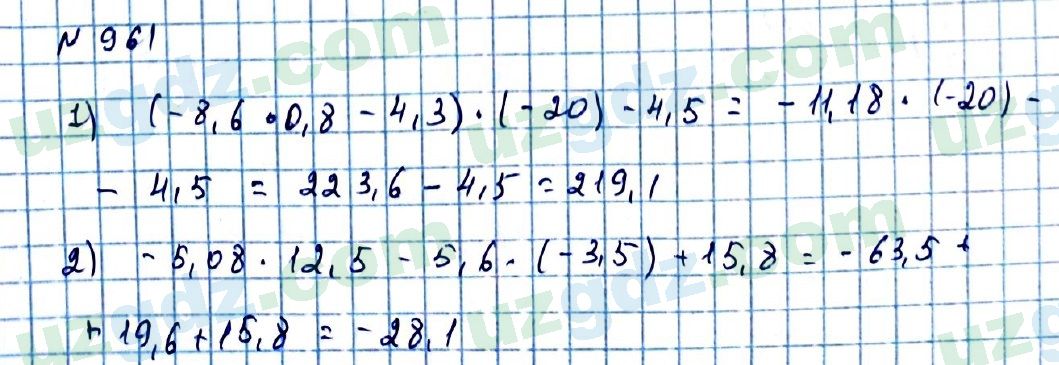 № 961
1) (-8,6 · 0,8 - 4,3) · (-20) - 4,5 = -11,18 · (-20) -
- 4,5 = 223,6 - 4,5 = 219,1
2) -5,08 · 12,5 - 5,6 · (-3,5) + 15,8 = -63,5 +
+ 19,6 + 15,8 = -28,1
uzgdz.com
uzgdz.com
uzgdz.com
uzgdz.com